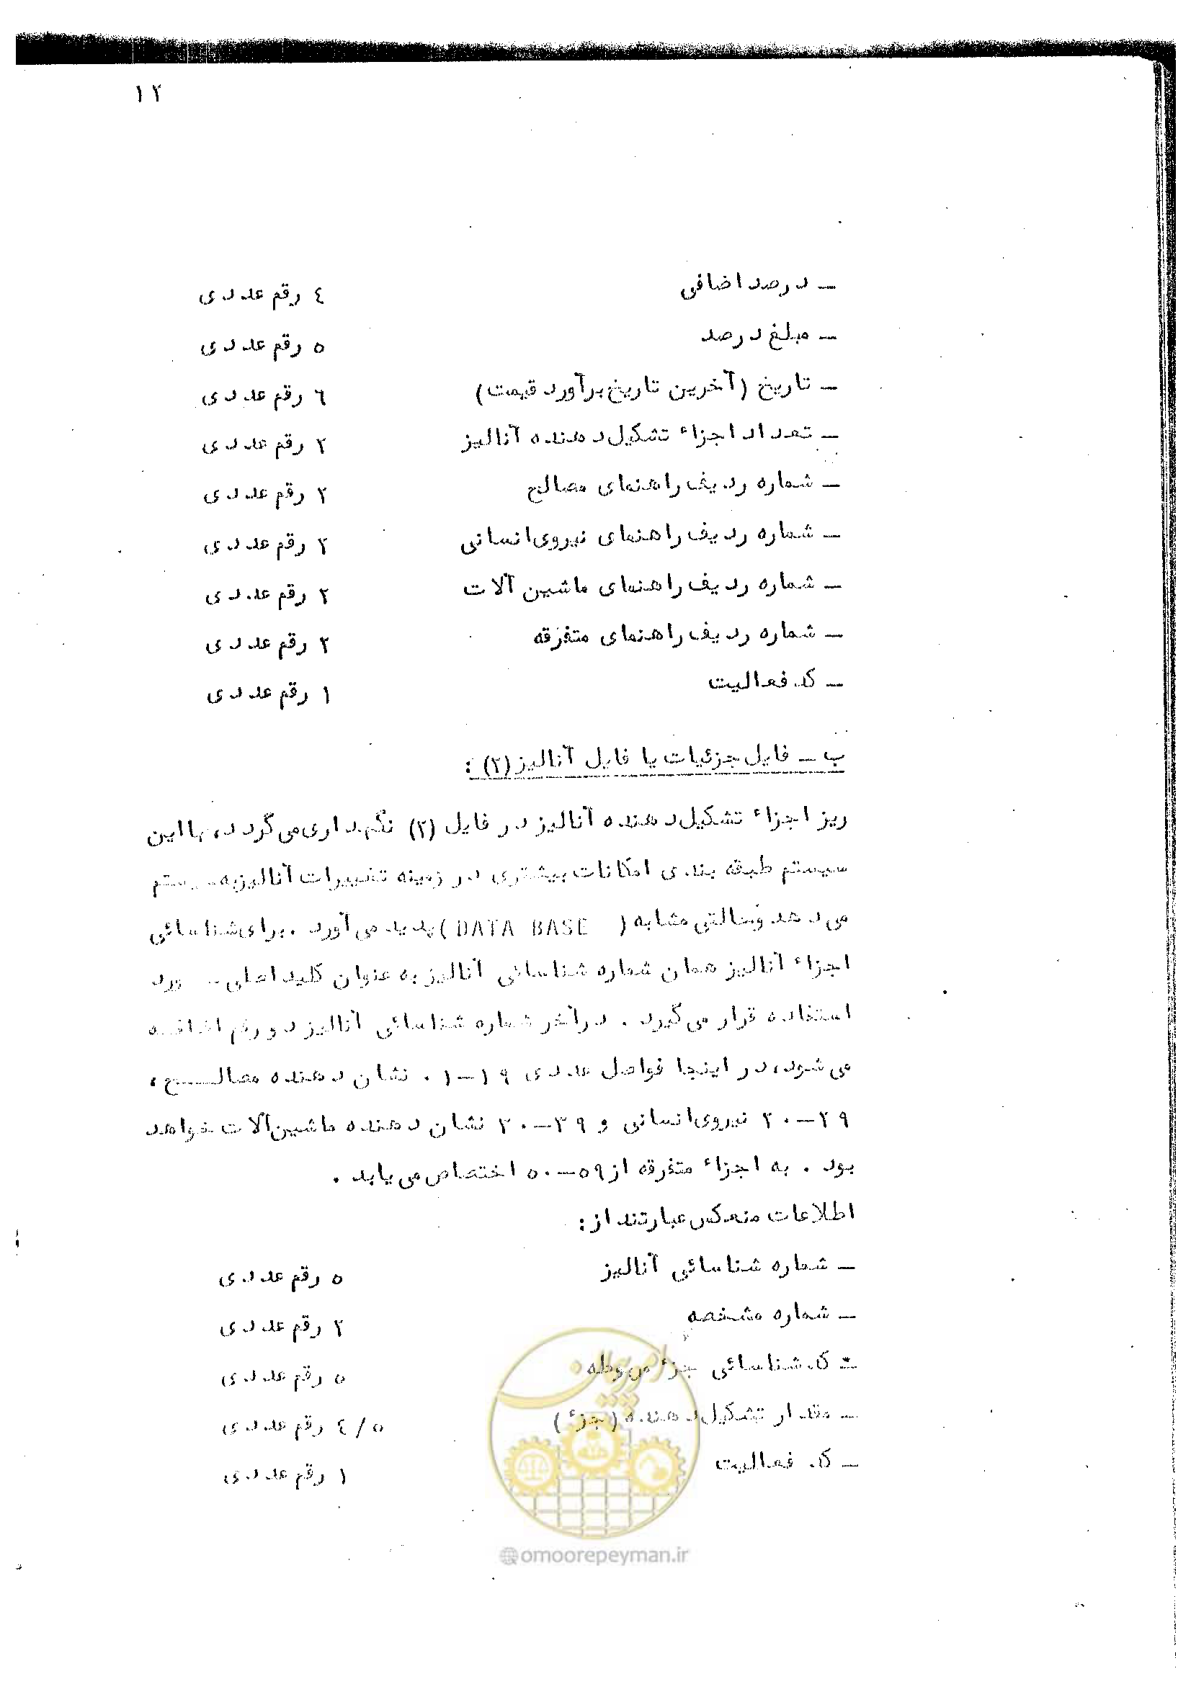 ۱۲
ـ درصد اضافی ٤ رقم عددی
ـ مبلغ درصد ٥ رقم عددی
ـ تاریخ (آخرین تاریخ برآورد قیمت) ٦ رقم عددی
ـ تعداد اجزاء تشکیل دهنده آنالیز ۲ رقم عددی
ـ شماره ردیف راهنمای مصالح ۲ رقم عددی
ـ شماره ردیف راهنمای نیروی انسانی ۲ رقم عددی
ـ شماره ردیف راهنمای ماشین آلات ۲ رقم عددی
ـ شماره ردیف راهنمای متفرقه ۲ رقم عددی
ـ کد فعالیت ۱ رقم عددی
ب ـ فایل جزئیات یا فایل آنالیز (۲) :
ریز اجزاء تشکیل دهنده آنالیز در فایل (۲) نگهداری می گردد، با این
سیستم طبقه بندی امکانات بیشتری در زمینه تغییرات آنالیز به سیستم
می دهد و حالتی مشابه ( DATA BASE ) پدید می آورد . برای شناسائی
اجزاء آنالیز همان شماره شناسائی آنالیز به عنوان کلید اصلی مورد
استفاده قرار می گیرد . در آخر شماره شناسائی آنالیز دو رقم اضافه
می شود، در اینجا فواصل عددی ۱۹-۰۱ نشان دهنده مصالح ،
۲۹-۲۰ نیروی انسانی و ۳۹-۳۰ نشان دهنده ماشین آلات خواهد
بود . به اجزاء متفرقه از ٥۹-٥۰ اختصاص می یابد .
اطلاعات منعکس عبارتند از :
ـ شماره شناسائی آنالیز ٥ رقم عددی
ـ شماره مشخصه ۲ رقم عددی
ـ کد شناسائی جزء مربوطه ٥ رقم عددی
ـ مقدار تشکیل دهنده (جزء) ٤/٥ رقم عددی
ـ کد فعالیت ۱ رقم عددی
امور پیمان
@omoorepeyman.ir